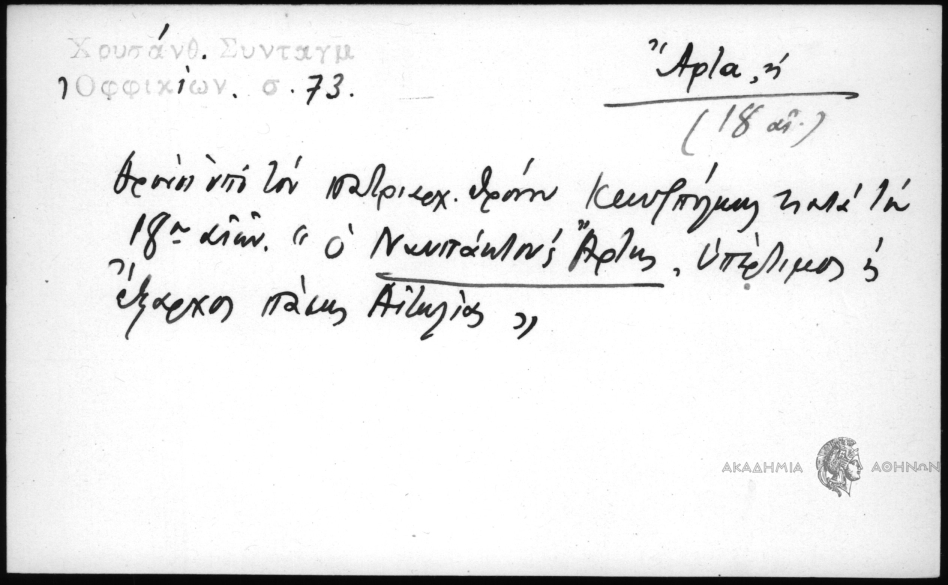 Χρυσάνθ. Συνταγμ
Ὀφφικίων. σ. 73.
Ἄρτα, ἡ
(18 αἰ.)
θρόνοι ὑπὸ τὸν πατριαρχ. θρόνον Κωνσ)πόλεως κατὰ τὸν
18ον αἰῶν. "ὁ Ναυπάκτου & Ἄρτης, ὑπέρτιμος &
ἔξαρχος πάσης Αἰτωλίας"
ΑΚΑΔΗΜΙΑ ΑΘΗΝΩΝ